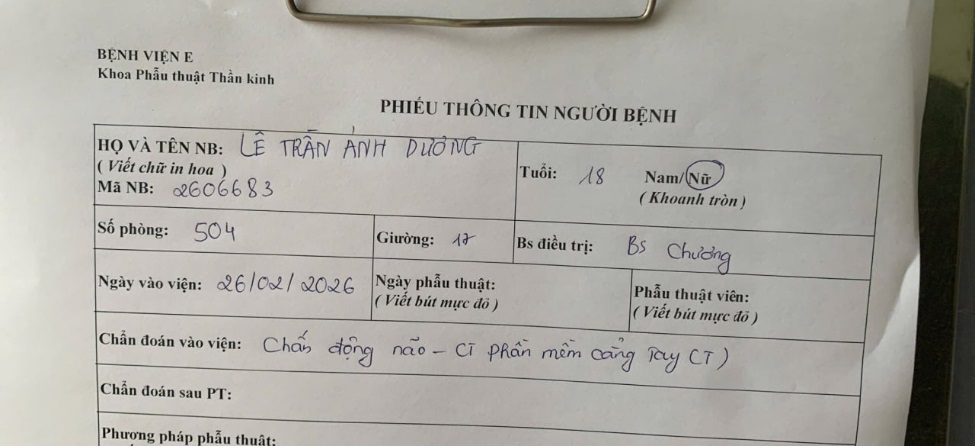 BỆNH VIỆN E
Khoa Phẫu thuật Thần kinh
PHIẾU THÔNG TIN NGƯỜI BỆNH
HỌ VÀ TÊN NB: LÊ TRẦN ÁNH DƯƠNG
( Viết chữ in hoa )
Mã NB: 2606683
Tuổi: 18 Nam/Nữ
( Khoanh tròn )
Số phòng: 504 Giường: 17 Bs điều trị: Bs Chương
Ngày vào viện: 26/02/2026 Ngày phẫu thuật: Phẫu thuật viên:
( Viết bút mực đỏ ) ( Viết bút mực đỏ )
Chẩn đoán vào viện: Chấn động não - CT phần mềm cẳng tay (T)
Chẩn đoán sau PT:
Phương pháp phẫu thuật: